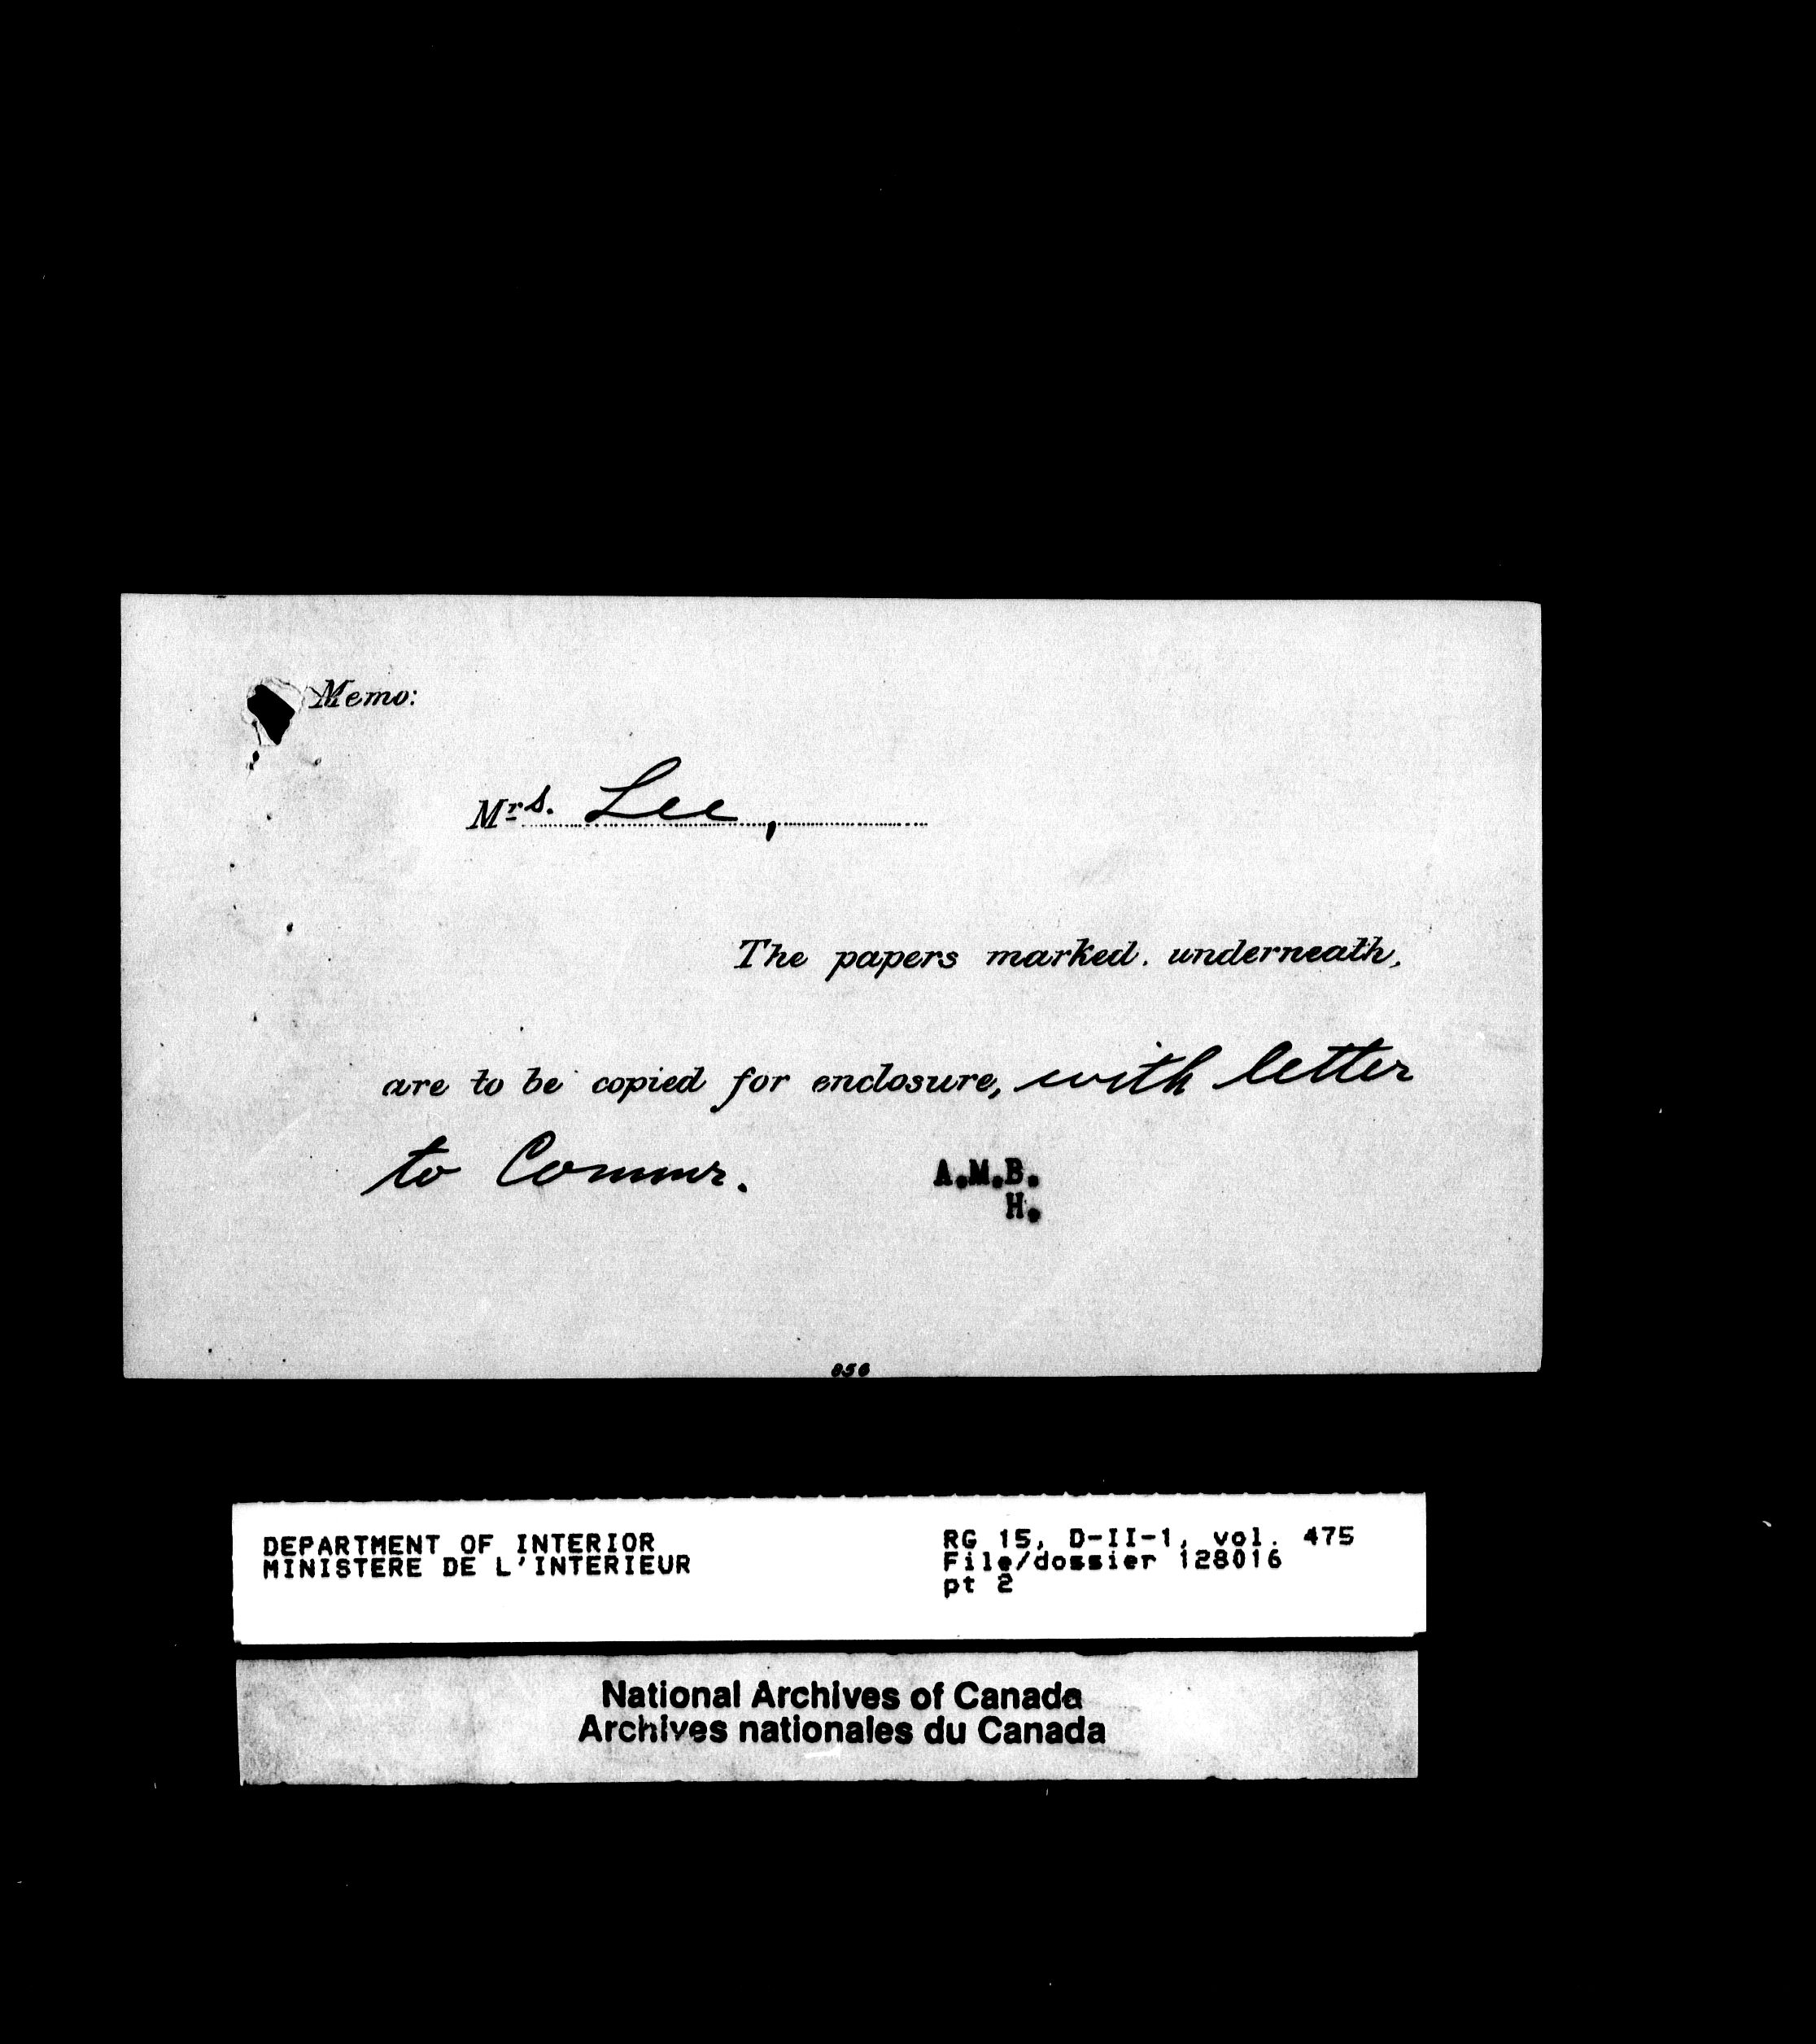 Memo:
Mrs. Lee,
The papers marked underneath,
are to be copied for enclosure, with letter
to Commr.
A.M.B.
H.
856
DEPARTMENT OF INTERIOR
MINISTERE DE L'INTERIEUR
RG 15, D-II-1, vol. 475
File/dossier 128016
pt 2
National Archives of Canada
Archives nationales du Canada